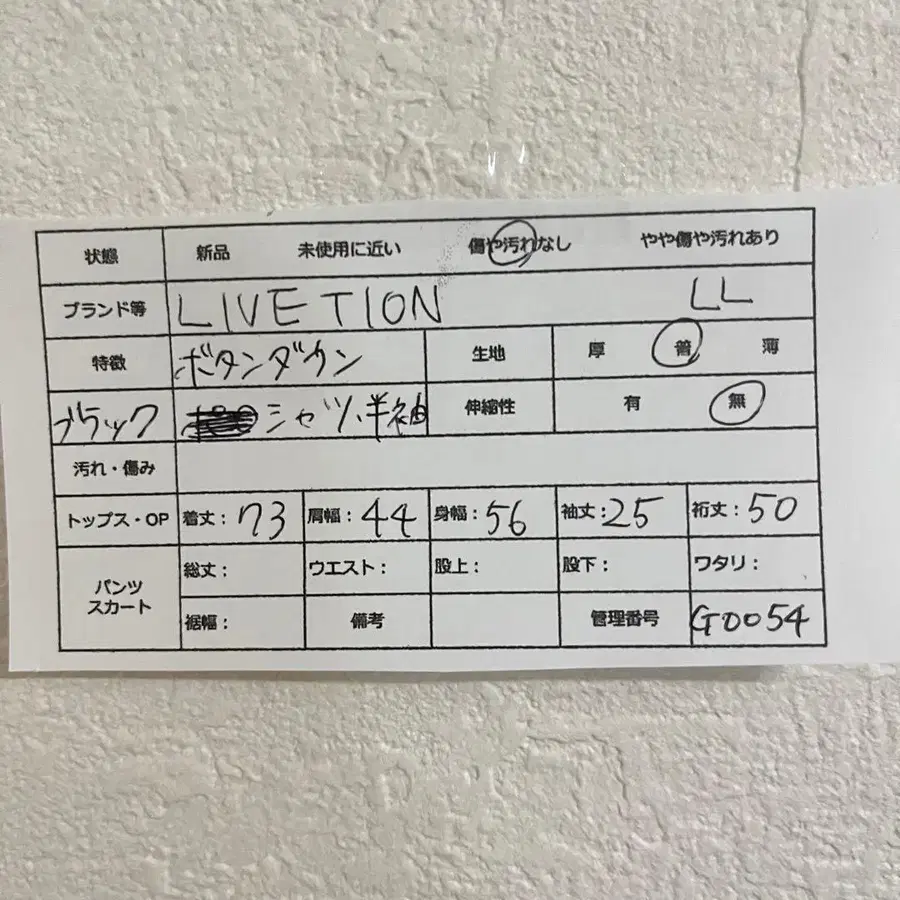 状態 新品 未使用に近い 傷や汚れなし やや傷や汚れあり
ブランド等 LIVETION LL
特徴 ボタンダウン 生地 厚 普 薄
ブラック シャツ、半袖 伸縮性 有 無
汚れ・傷み
トップス・OP 着丈：73 肩幅：44 身幅：56 袖丈：25 裄丈：50
パンツ スカート 総丈： ウエスト： 股上： 股下： ワタリ：
裾幅： 備考 管理番号 G0054